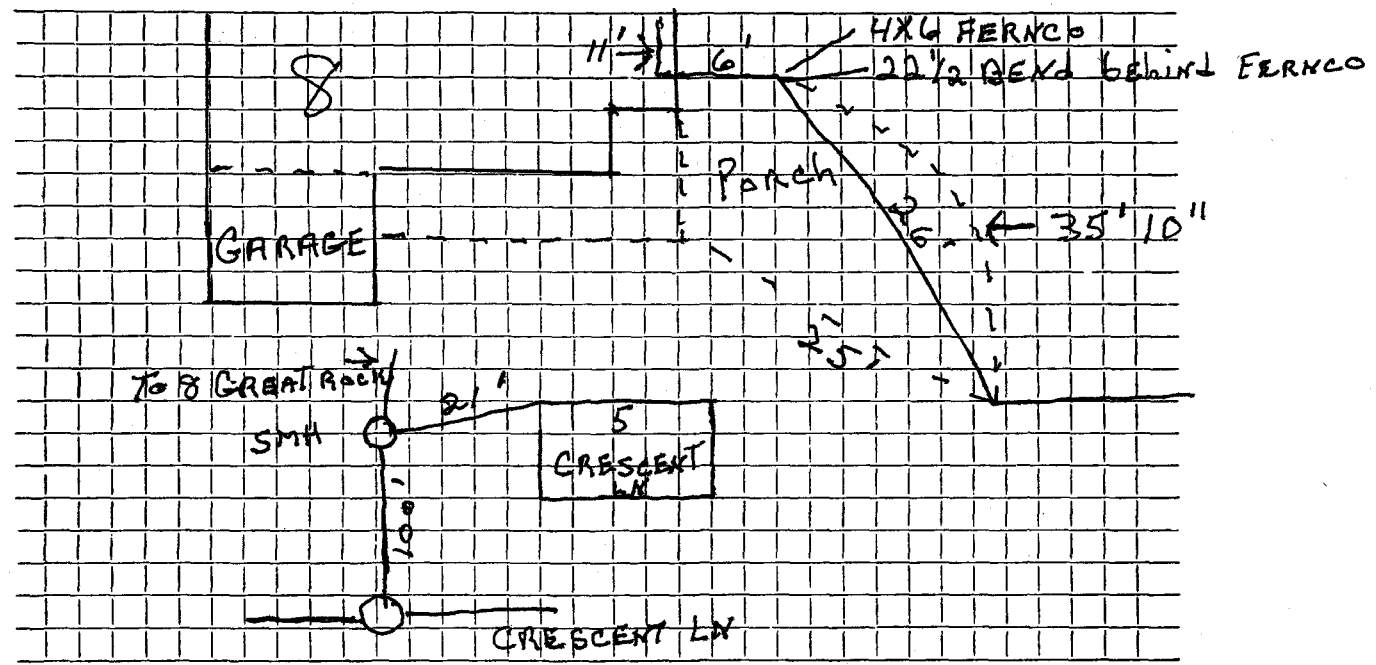 11'
6'
4X6 FERNCO
22 1/2 BENd behind FERNCO
8
Porch
GARAGE
35' 10"
25'
To 8 GREAT ROCK
21'
SMH
5
CRESCENT
LN
100'
CRESCENT LN